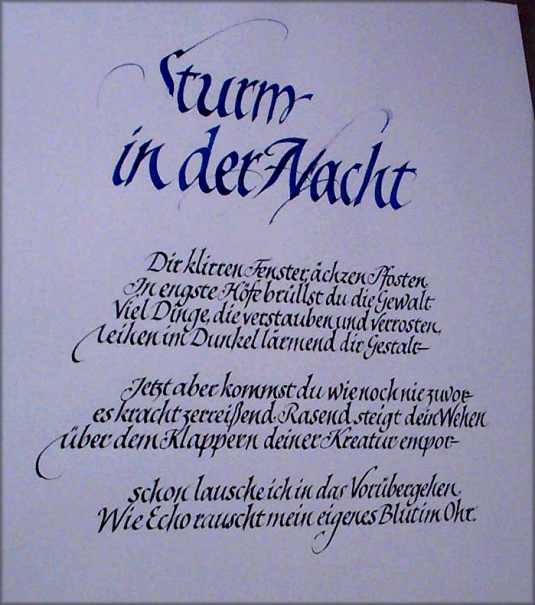 Sturm
in der Nacht
Dir klirren Fenster, ächzen Pfosten,
In engste Höfe brüllst du die Gewalt
Viel Dinge, die verstauben und verrosten,
leihen im Dunkel lärmend dir Gestalt
Jetzt aber kommst du wie noch nie zuvor
es kracht zerreißend. Rasend steigt dein Wehen
über dem Klappern deiner Kreatur empor
schon lausche ich in das Vorübergehen,
Wie Echo rauscht mein eigenes Blut im Ohr.